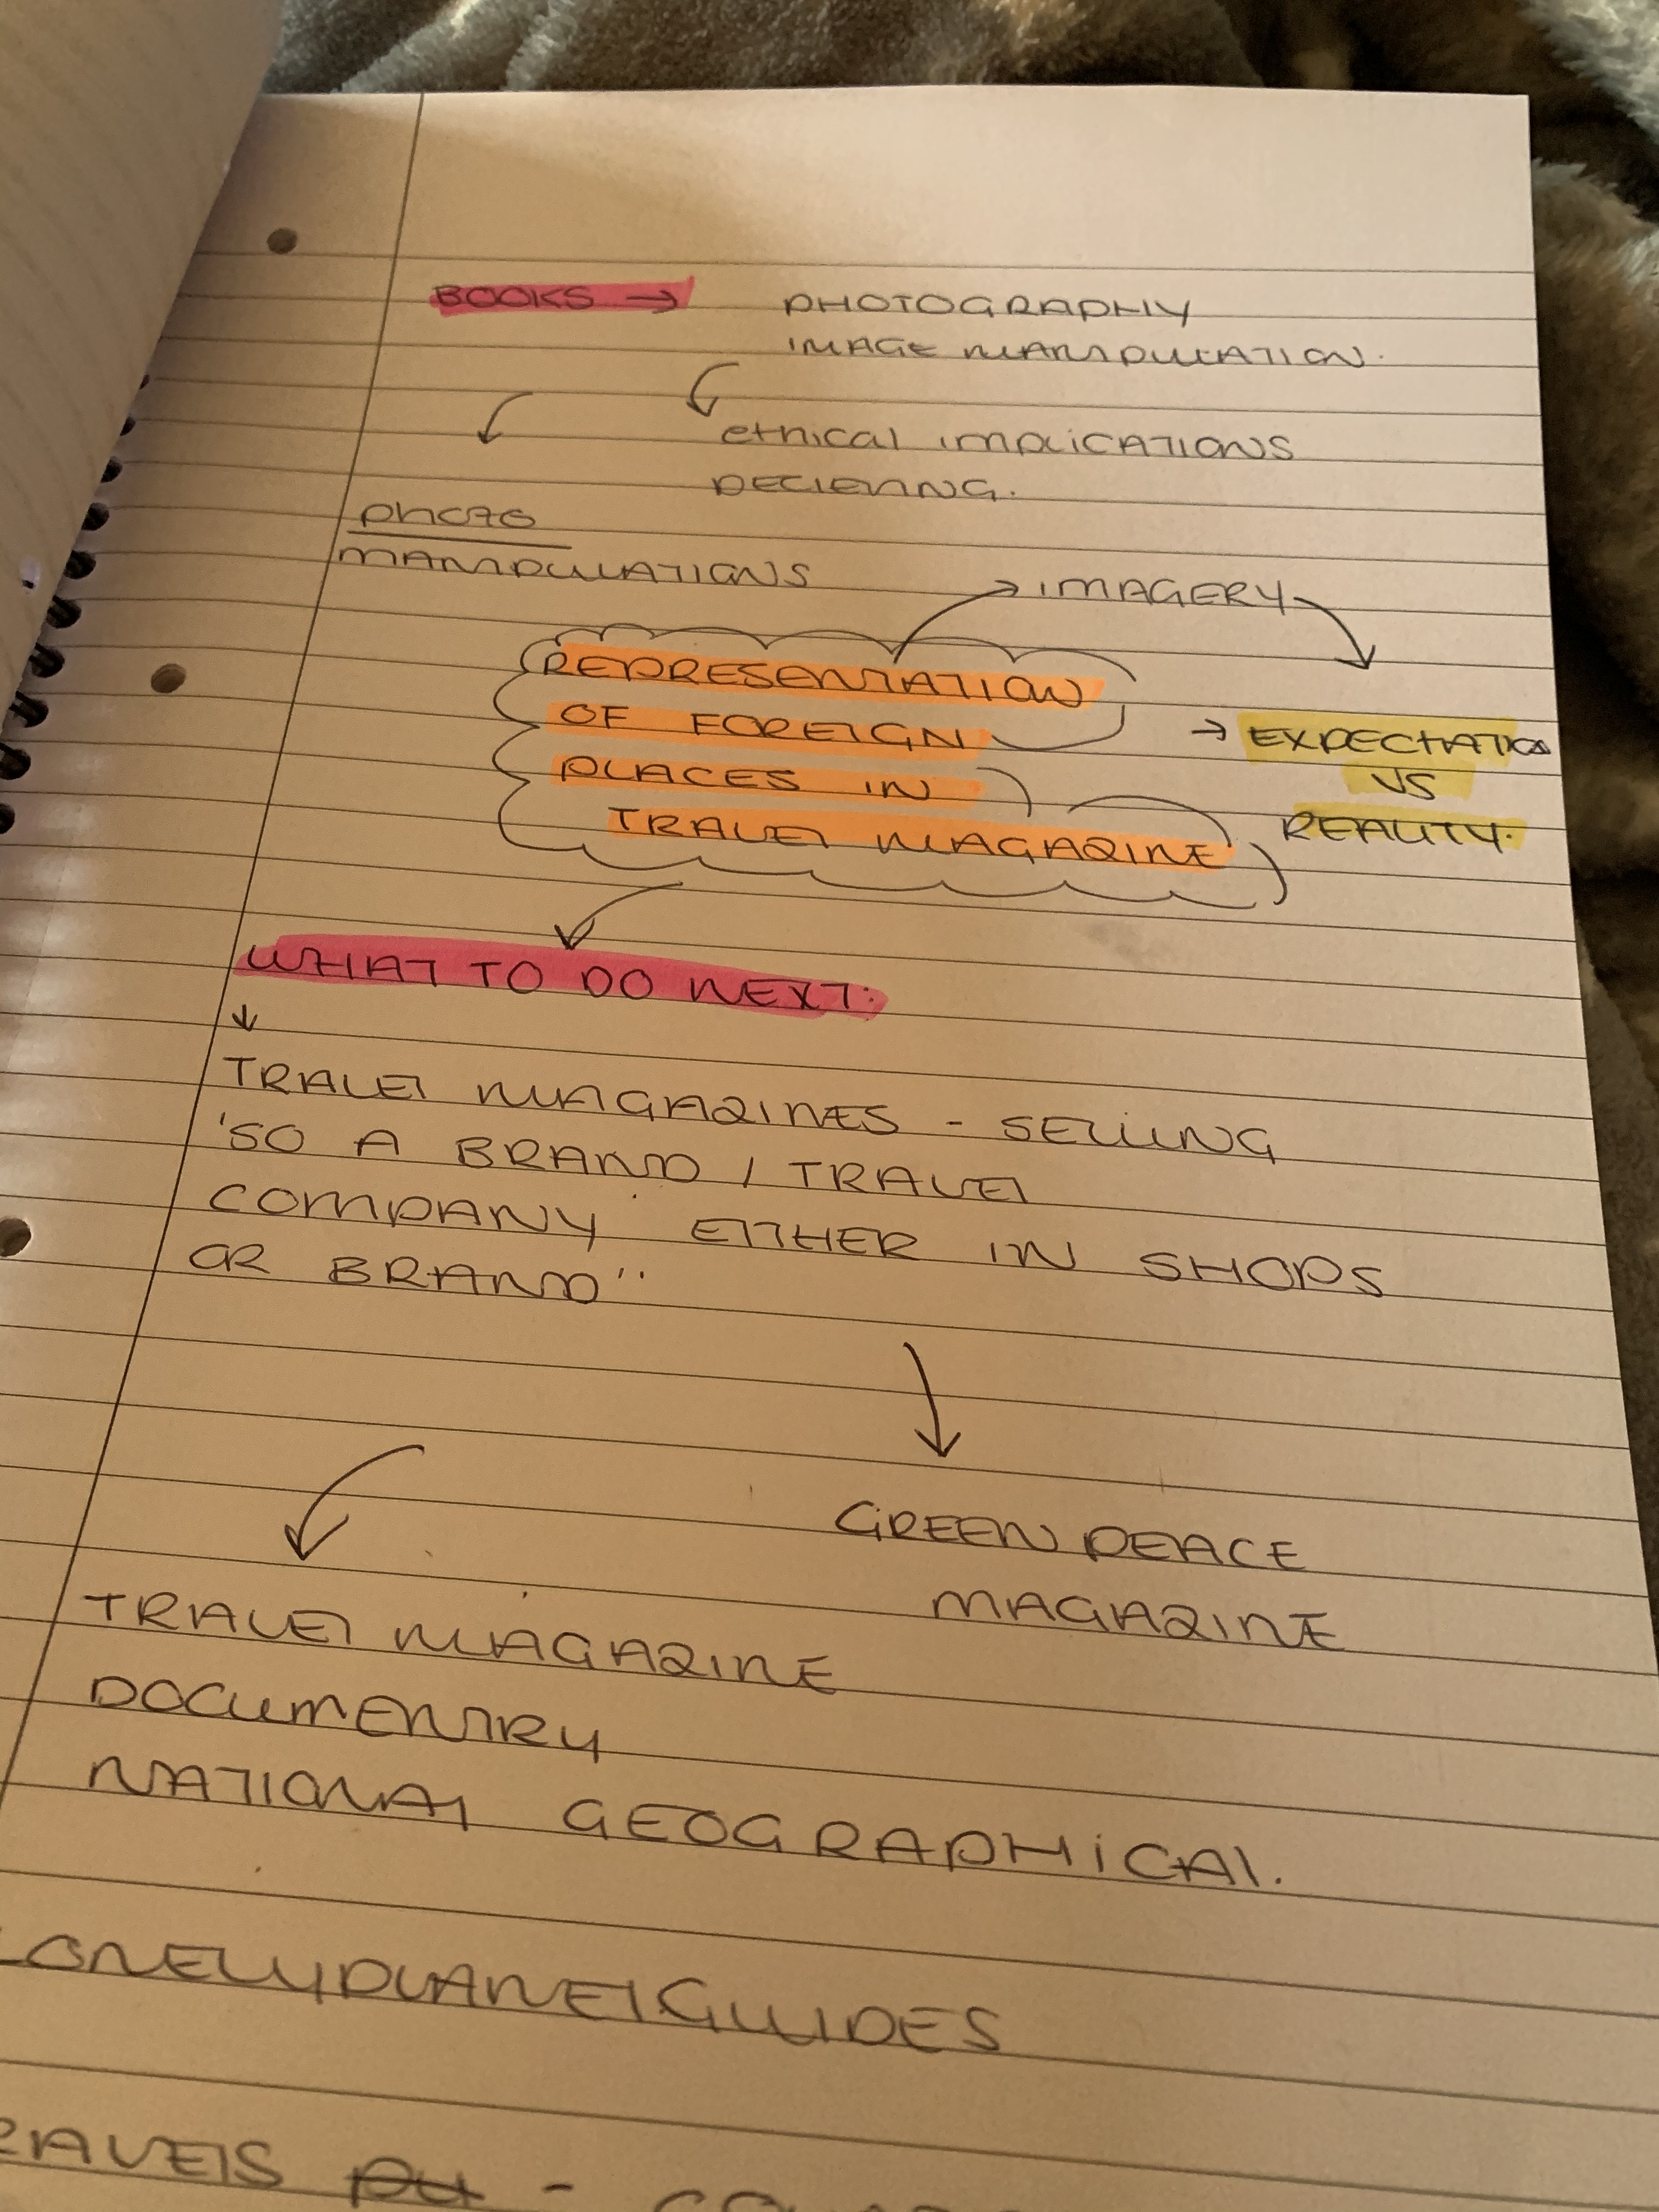 BOOKS → PHOTOGRAPHY
IMAGE MANIPULATION.
ethical IMPLICATIONS
DECIEVING.
PHOTO
MANIPULATIONS
IMAGERY
REPRESENTATION
OF FOREIGN
PLACES IN
TRAVEL MAGAZINE
→ EXPECTATION
VS
REALITY.
WHAT TO DO NEXT:
TRAVEL MAGAZINES - SELLING
'SO A BRAND / TRAVEL
COMPANY EITHER IN SHOPS
OR BRAND"
GREEN PEACE
MAGAZINE
TRAVEL MAGAZINE
DOCUMENTRY
NATIONAL GEOGRAPHICAL.
LONELYPLANETGUIDES
RAVELS -